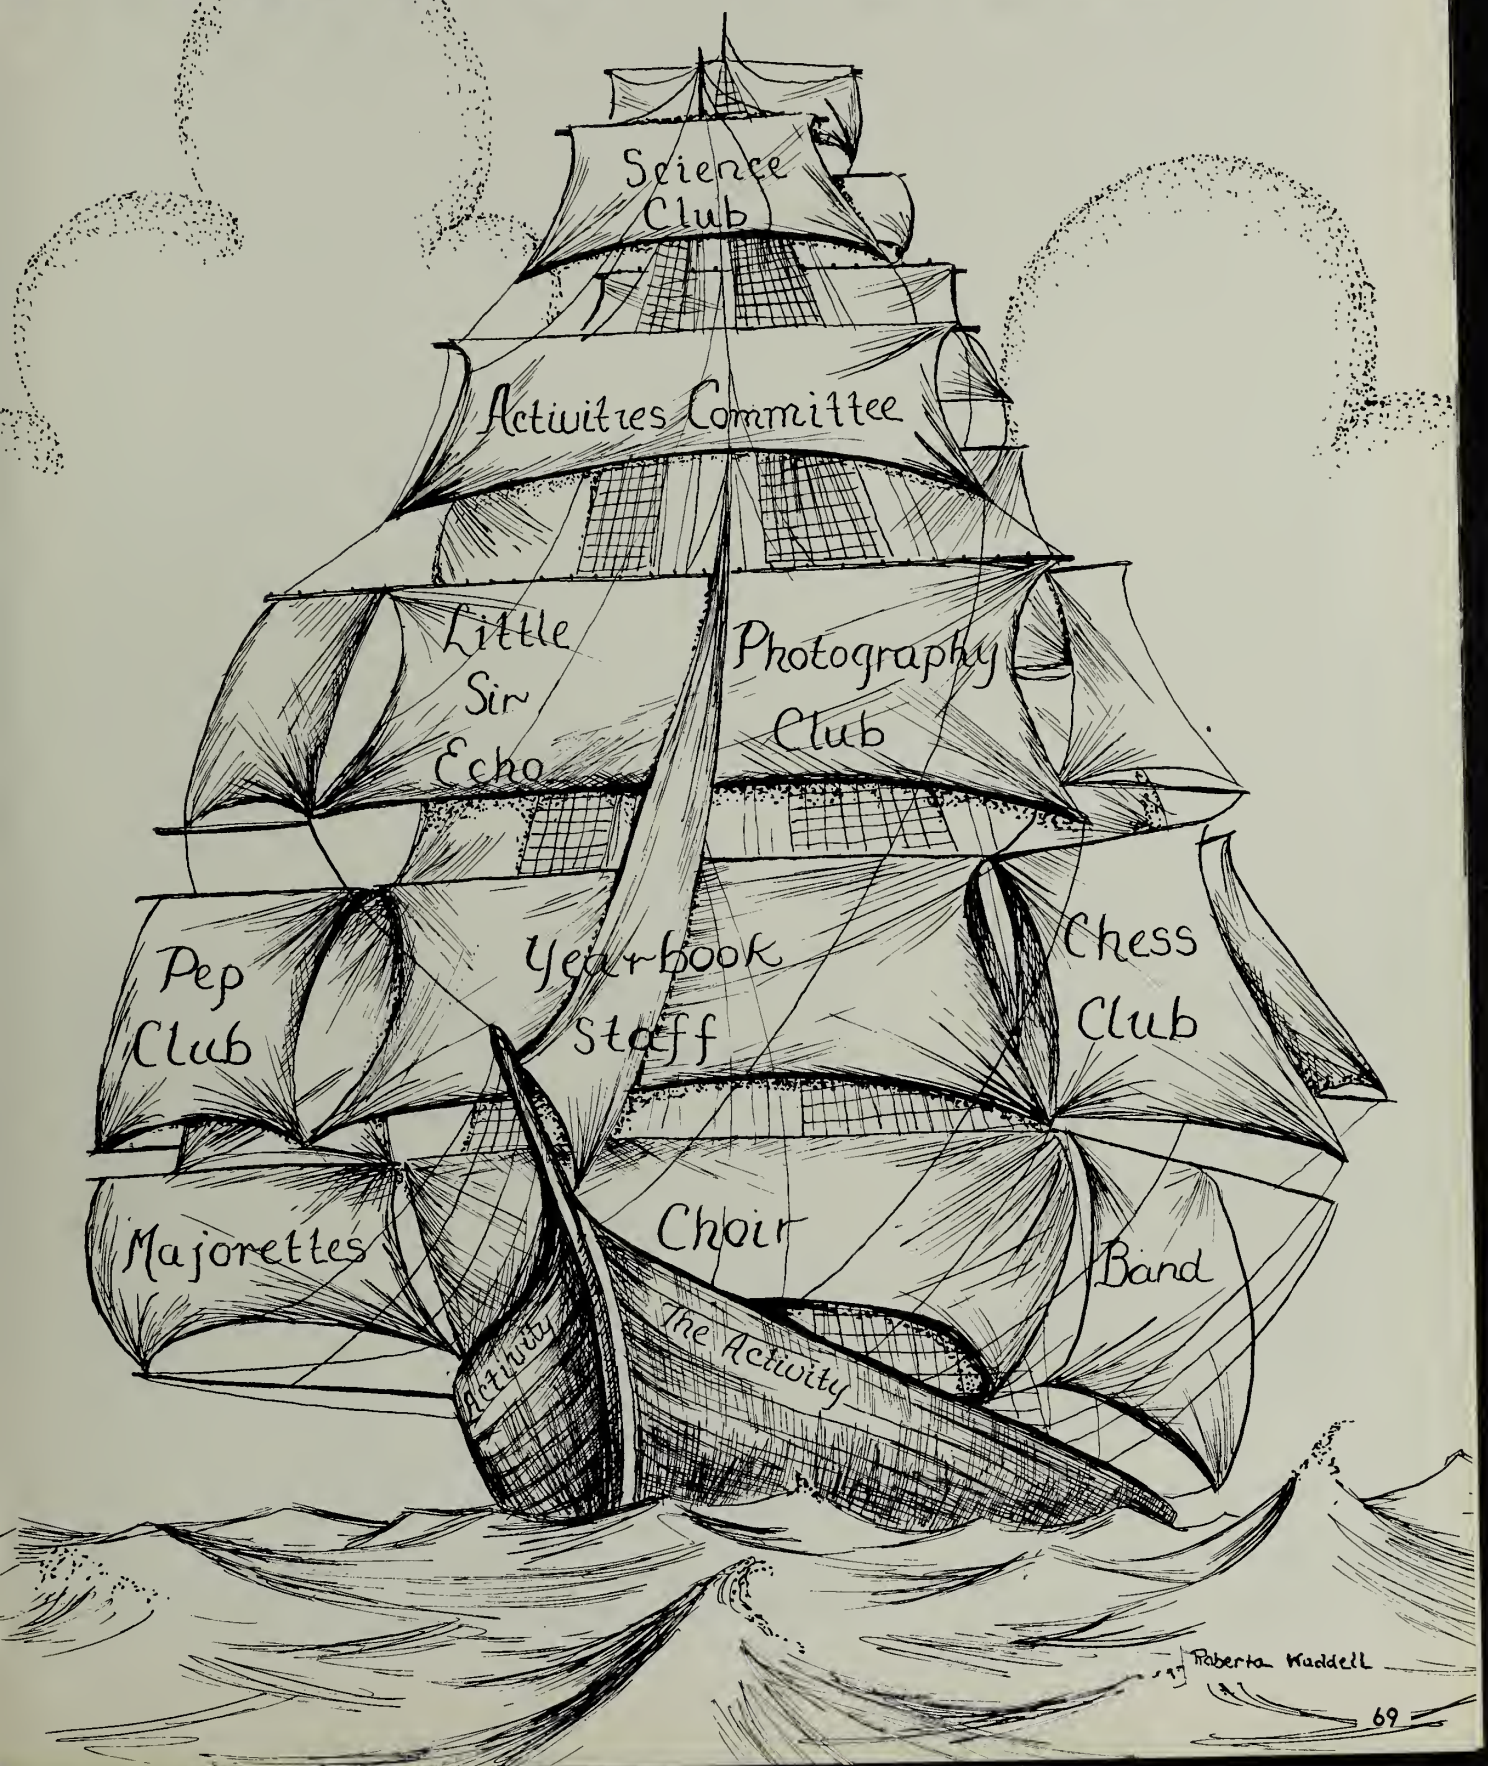 Science
Club
Activities Committee
Little
Sir
Echo
Photography
Club
Pep
Club
Yearbook
Staff
Chess
Club
Majorettes
Choir
Band
Activity
The Activity
Roberta Waddell
69